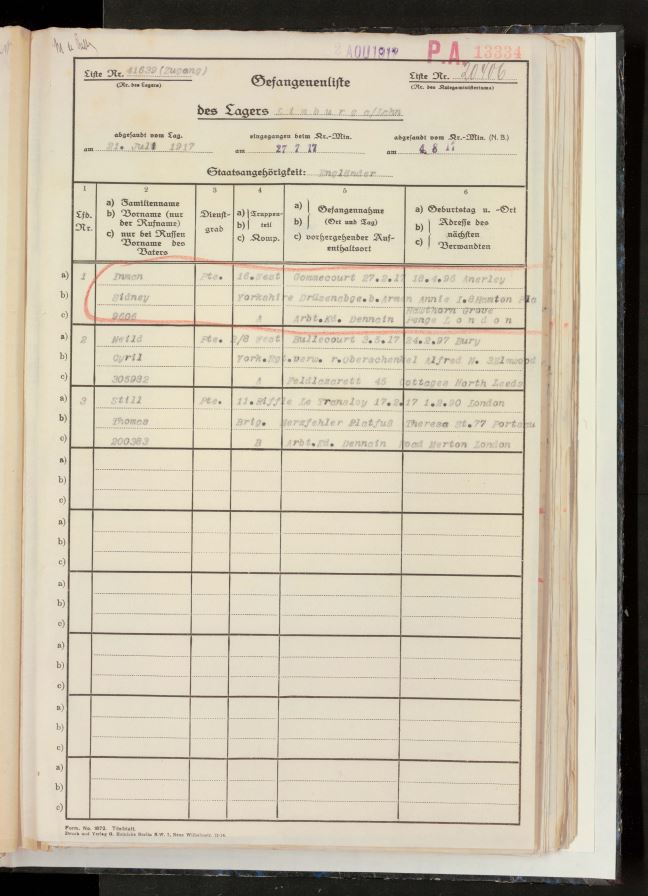 2 AOU 1917 P.A. 13334
Liste Nr. 41639 (Zugang) Liste Nr. 20406
(Nr. des Lagers) (Nr. des Kriegsministeriums)
Gefangenenliste
des Lagers Limburg a/Lahn
abgesandt vom Lag. eingegangen beim Kr.-Min. abgesandt vom Kr.-Min. (N. B.)
am 21. Juli 1917 am 27 7 17 am 4. 8 17
Staatsangehörigkeit: Engländer
1 2 3 4 5 6
Lfd. Nr.
a) Familienname
b) Vorname (nur der Rufname)
c) nur bei Russen Vorname des Vaters
Dienstgrad
a) Truppenteil
b)
c) Komp.
a) Gefangennahme
b) (Ort und Tag)
c) vorhergehender Aufenthaltsort
a) Geburtstag u. -Ort
b) Adresse des nächsten
c) Verwandten
a) 1 Inman Pte. 16.West Gommecourt 27.2.17 18.4.96 Anerley
b) Sidney Yorkshire Drüsenabge.b.Armen Annie I.8Hamton Pla
Hawthorn Grove
c) A Arbt.Kd. Dennain Penge London
a) 2 Neild Pte. 2/8 West Bullecourt 3.5.17 24.2.97 Bury
b) Cyril York.Rgt.verw. r.Oberschenkel Alfred N. Elmwood
c) 305932 A Feldlazarett 45 Cottages North Leeds
a) 3 Still Pte. 11.Riffle Le Transloy 17.2.17 1.2.90 London
b) Thomas Brig. Herzfehler Platfuß Theresa St.77 Portenu
c) 200383 B Arbt.Kd. Dennain Road Merton London
a)
b)
c)
a)
b)
c)
a)
b)
c)
a)
b)
c)
a)
b)
c)
a)
b)
c)
Form. No. 1872. Titelblatt.